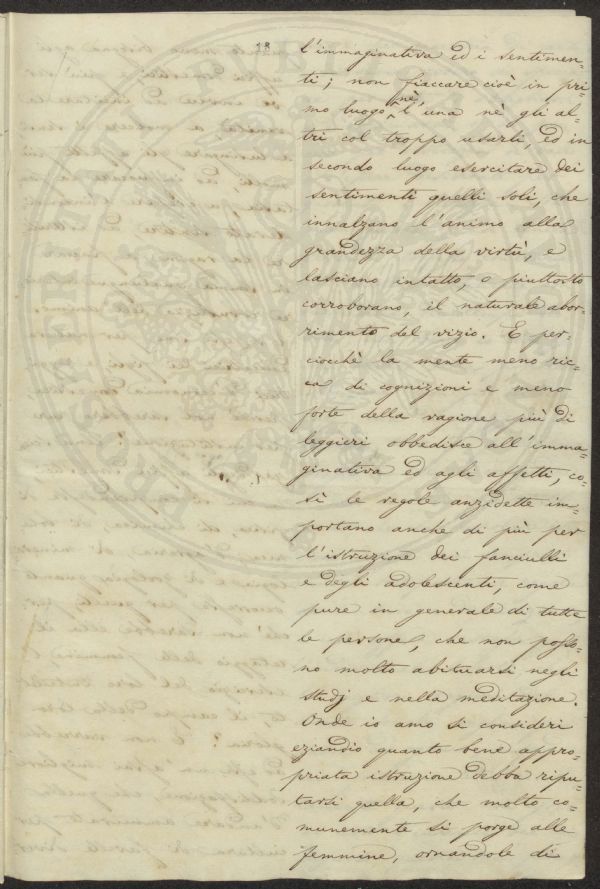 18
l'immaginativa ed i sentimen=
ti; non fiaccare cioè in pri=
mo luogo nè l'una nè gli al=
tri col troppo usarli, ed in
secondo luogo esercitare dei
sentimenti quelli soli, che
innalzano l'animo alla
grandezza della virtù, e
lasciano intatto, o piuttosto
corroborano, il naturale abor=
rimento del vizio. E per=
ciocchè la mente meno ric=
ca di cognizioni e meno
forte della ragione più di
leggieri obbedisce all'imma=
ginativa ed agli affetti, co=
sì le regole anzidette im=
portano anche di più per
l'istruzione dei fanciulli
e degli adolescenti, come
pure in generale di tutte
le persone, che non posso=
no molto abituarsi negli
studj e nella meditazione.
Onde io amo si consideri
eziandio quanto bene appro=
priata istruzione debba ripu=
tarsi quella, che molto co=
munemente si porge alle
femmine, ornandole di